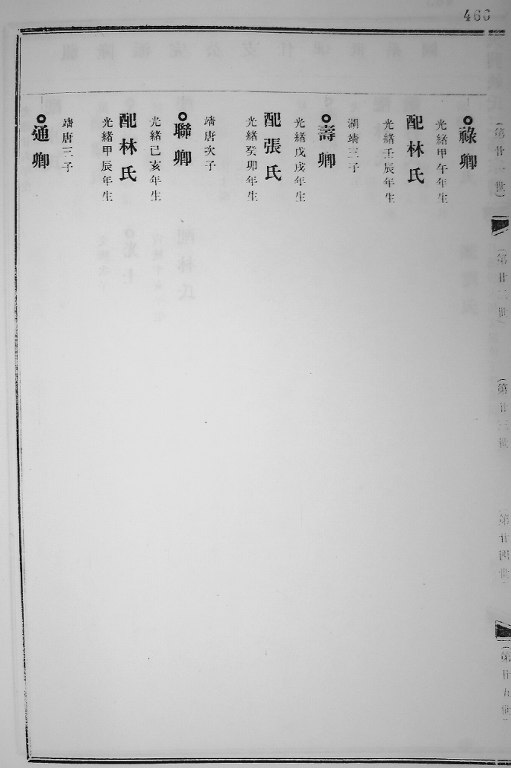 466
祿卿
光緒甲午年生
配林氏
光緒壬辰年生
湖靖三子
壽卿
光緒戊戌年生
配張氏
光緒癸卯年生
靖唐次子
聯卿
光緒己亥年生
配林氏
光緒甲辰年生
靖唐三子
通卿
(第廿一世)
(第廿三世
第廿四世
(第廿五世